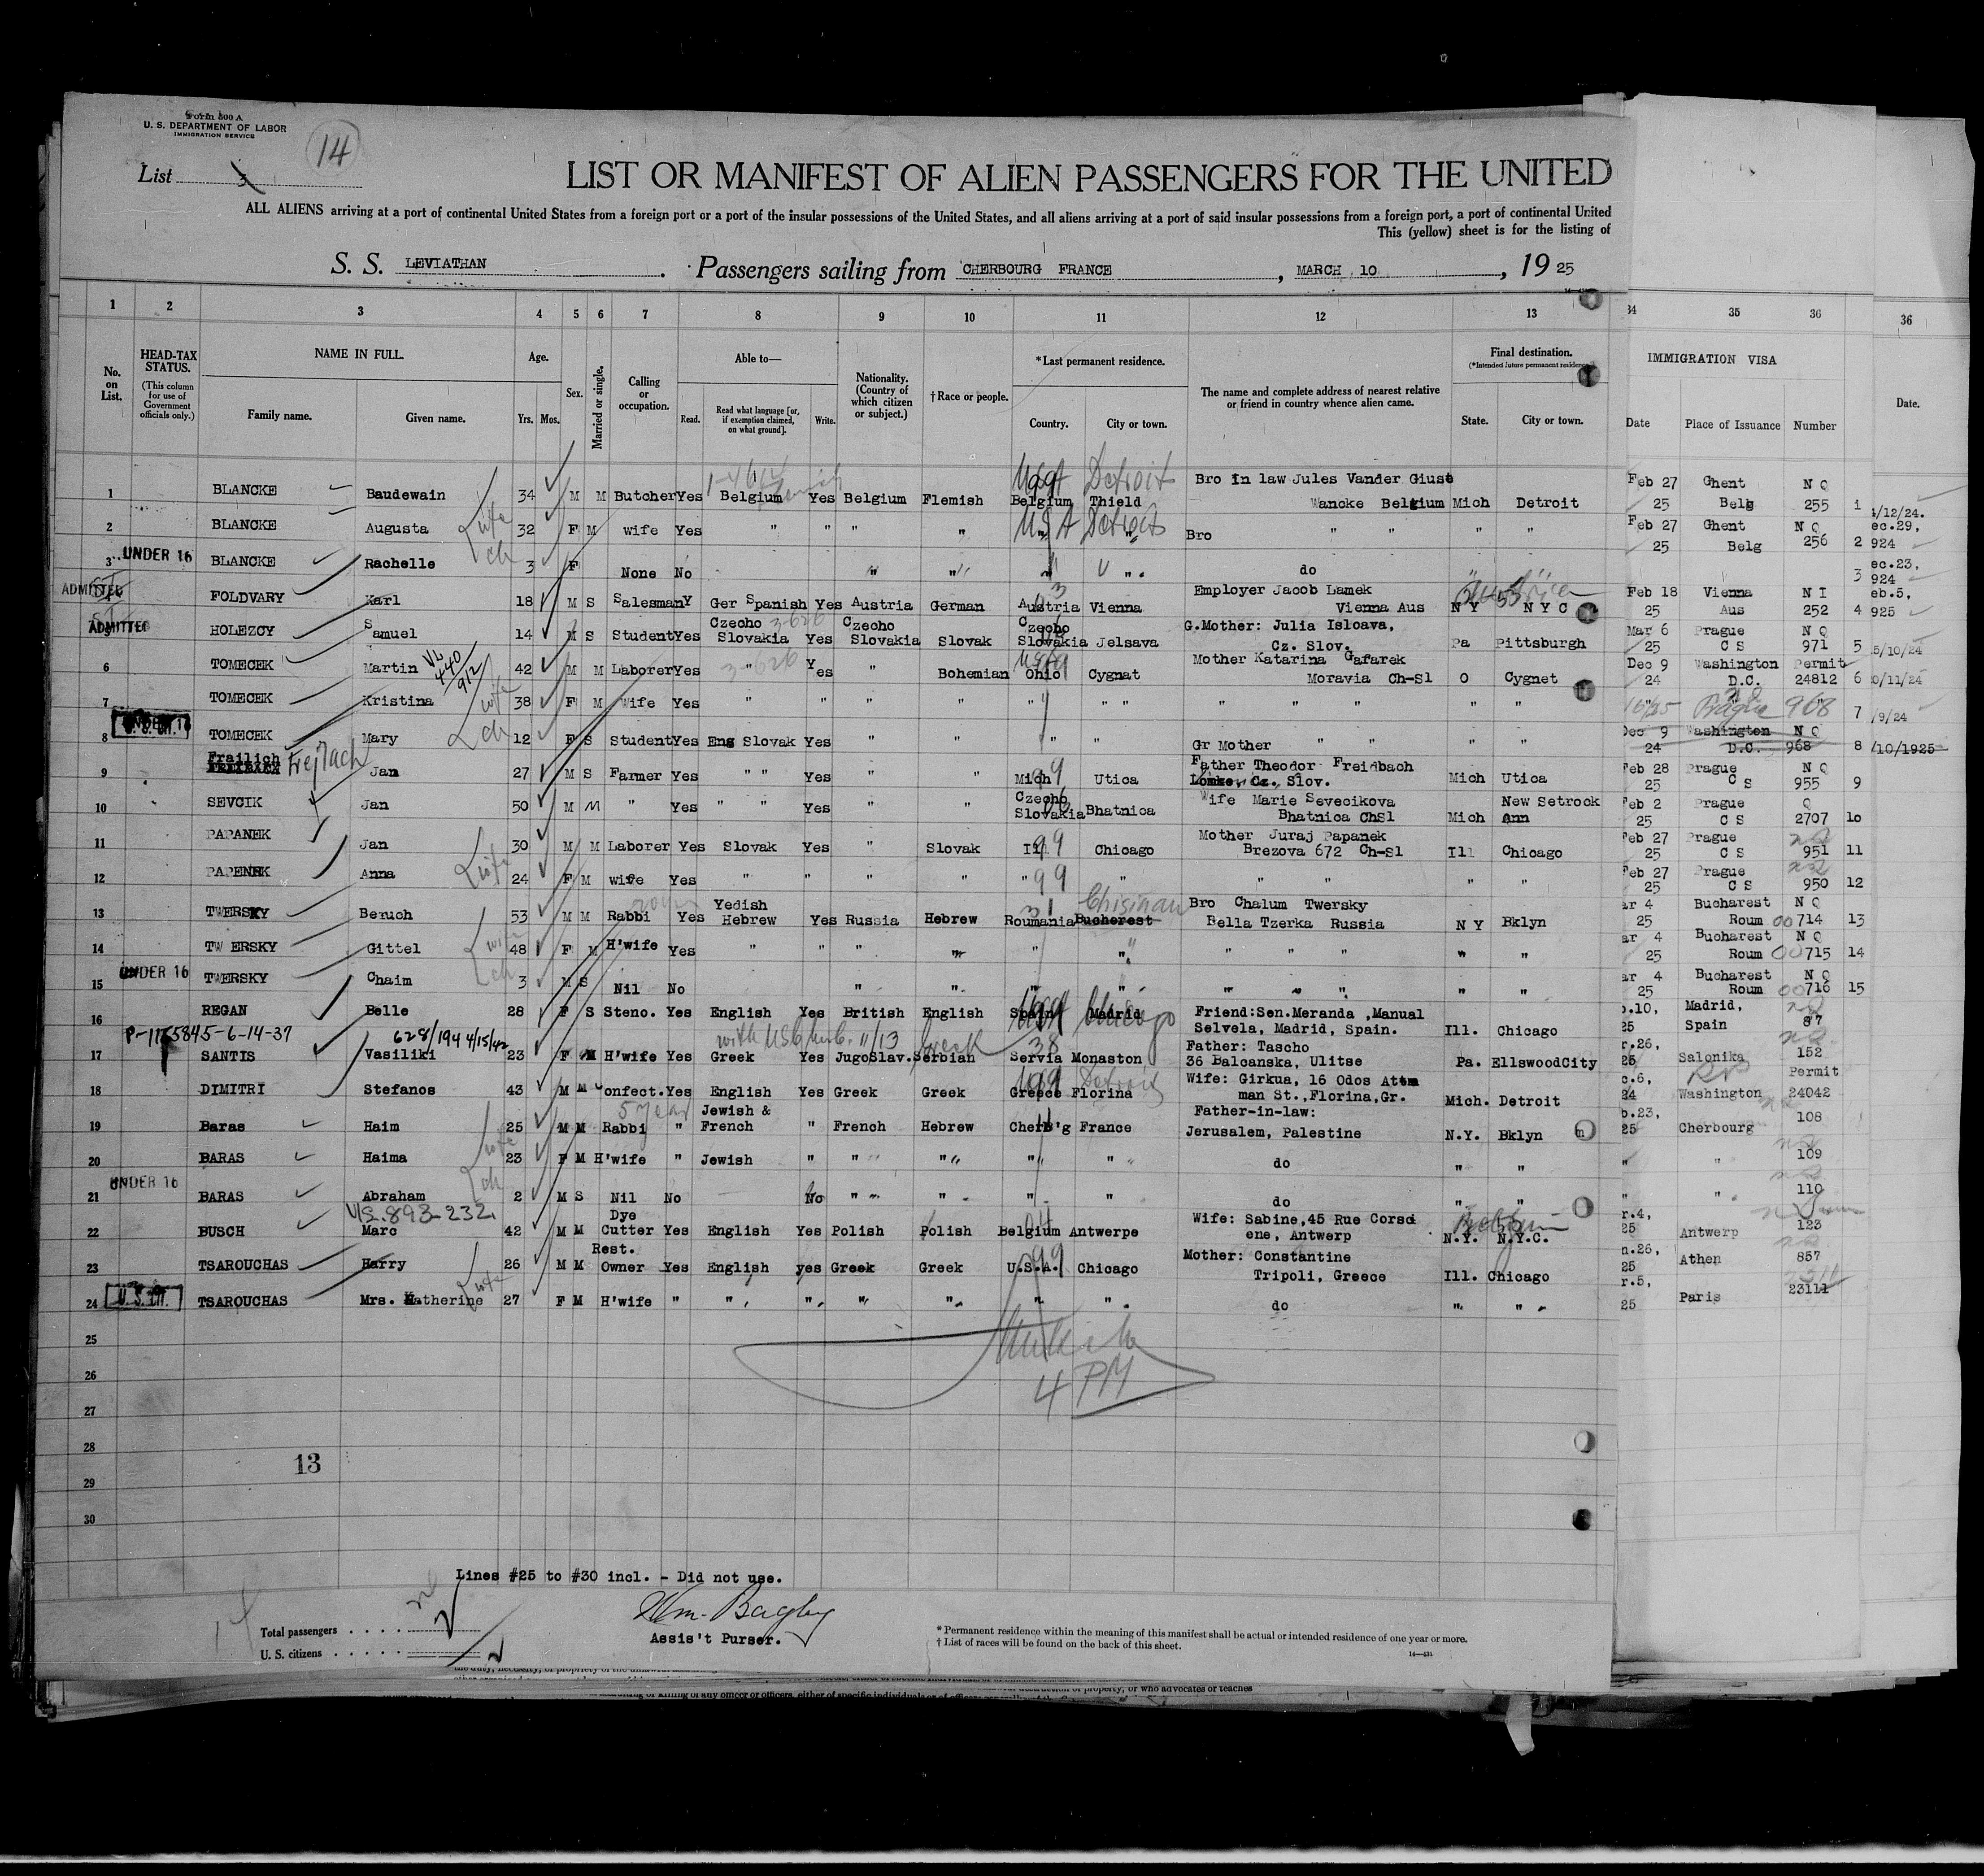 Form 500 A
U. S. DEPARTMENT OF LABOR
IMMIGRATION SERVICE
14
List 3
LIST OR MANIFEST OF ALIEN PASSENGERS FOR THE UNITED
ALL ALIENS arriving at a port of continental United States from a foreign port or a port of the insular possessions of the United States, and all aliens arriving at a port of said insular possessions from a foreign port, a port of continental United
This (yellow) sheet is for the listing of
S. S. LEVIATHAN . Passengers sailing from CHERBOURG FRANCE , MARCH 10 , 19 25
1 2 3 4 5 6 7 8 9 10 11 12 13 34 35 36 36
No. on List. HEAD-TAX STATUS. (This column for use of Government officials only.) NAME IN FULL. Family name. Given name. Age. Yrs. Mos. Sex. Married or single. Calling or occupation. Able to— Read. Read what language [or, if exemption claimed, on what ground]. Write. Nationality. (Country of which citizen or subject.) †Race or people. *Last permanent residence. Country. City or town. The name and complete address of nearest relative or friend in country whence alien came. Final destination. (*Intended future permanent residence) State. City or town. IMMIGRATION VISA Date Place of Issuance Number Date.
1 BLANCKE Baudewain 34 M M Butcher Yes Belgium Yes Belgium Flemish Belgium Thield USA Detroit Bro in law Jules Vander Giust Wancke Belgium Mich Detroit Feb 27 25 Ghent Belg N Q 255 1 4/12/24.
2 BLANCKE Augusta wife 32 F M wife Yes " " " " USA Detroit Bro " " " " Feb 27 25 Ghent Belg N Q 256 2 ec.29, 924
3 UNDER 16 BLANCKE Rachelle ch 3 F None No " " " " do " " 3 ec.23, 924
ADMITTED FOLDVARY Karl 18 M S Salesman Y Ger Spanish Yes Austria German Austria Vienna Employer Jacob Lamek Vienna Aus N Y N Y C Feb 18 25 Vienna Aus N I 252 4 eb.5, 925
ADMITTED HOLEZCY Samuel 14 M S Student Yes Czecho Slovakia 3-626 Yes Czecho Slovakia Slovak Czecho Slovakia Jelsava G.Mother: Julia Isloava, Cz. Slov. Pa Pittsburgh Mar 6 25 Prague C S N Q 971 5 5/10/24
6 TOMECEK Martin 440/912 42 M M Laborer Yes " 3-626 Yes " Bohemian Ohio Cygnat Mother Katarina Gafarek Moravia Ch-Sl O Cygnet Dec 9 24 Washington D.C. Permit 24812 6 0/11/24
7 TOMECEK Kristina wife 38 F M Wife Yes " " " " " " " " " " " " " Prague 968 7 /9/24
8 TOMECEK Mary ch 12 F S Student Yes Eng Slovak Yes " " " " Gr Mother " " " " Dec 9 24 Washington D.C. N Q 968 8 /10/1925
9 Frailich Frejlach Jan 27 M S Farmer Yes " " Yes " " Mich Utica Father Theodor Freidbach Cz. Slov. Mich Utica Feb 28 25 Prague C S N Q 955 9
10 SEVCIK Jan 50 M M " Yes " " Yes " " Czecho Slovakia Bhatnica Wife Marie Sevecikova Bhatnica ChSl Mich New Setrook Ann Feb 2 25 Prague C S Q 2707 10
11 PAPANEK Jan 30 M M Laborer Yes Slovak Yes " Slovak Ill Chicago Mother Juraj Papanek Brezova 672 Ch-Sl Ill Chicago Feb 27 25 Prague C S 951 11
12 PAPENEK Anna wife 24 F M wife Yes " " " " " " " " " " Feb 27 25 Prague C S 950 12
13 TWERSKY Beruch 53 M M Rabbi Yes Yedish Hebrew Yes Russia Hebrew Roumania Bucherest Chisinau Bro Chalum Twersky Bella Tzerka Russia N Y Bklyn ar 4 25 Bucharest Roum N Q 00714 13
14 TWERSKY Gittel wife 48 F M H'wife Yes " " " " " " " " " " " ar 4 25 Bucharest Roum N Q 00715 14
15 UNDER 16 TWERSKY Chaim ch 3 M S Nil No " " " " " " " " " ar 4 25 Bucharest Roum N Q 00716 15
16 REGAN Belle 28 F S Steno. Yes English Yes British English Spain Madrid USA Chicago Friend:Sen.Meranda ,Manual Selvela, Madrid, Spain. Ill. Chicago b.10, 25 Madrid, Spain 87
P-1165845-6-14-37 628/194 4/15/42
17 SANTIS Vasiliki 23 F M H'wife Yes Greek Yes JugoSlav. Serbian Greek Servia Monaston Father: Tascho 36 Balcanska, Ulitse Pa. EllswoodCity r.26, 25 Salonika 152
18 DIMITRI Stefanos 43 M M Confect. Yes English Yes Greek Greek Greece Florina Detroit Wife: Girkua, 16 Odos Attm man St.,Florina,Gr. Mich. Detroit c.6, 24 Washington Permit 24042
19 Baras Haim 25 M M Rabbi " Jewish & French " French Hebrew Cherb'g France Father-in-law: Jerusalem, Palestine N.Y. Bklyn b.23, 25 Cherbourg 108
20 BARAS Haima wife 23 F M H'wife " Jewish " " " " " do " " " " 109
21 UNDER 16 BARAS Abraham ch 2 M S Nil No No " " " " do " " " " 110
V/S.893-232
22 BUSCH Marc 42 M M Dye Cutter Yes English Yes Polish Polish Belgium Antwerpe Wife: Sabine,45 Rue Corsd ene, Antwerp N.Y. N.Y.C. r.4, 25 Antwerp 123
23 TSAROUCHAS Harry 26 M M Rest. Owner Yes English yes Greek Greek U.S.A. Chicago Mother: Constantine Tripoli, Greece Ill. Chicago n.26, 25 Athen 857
24 U.S. CIT. TSAROUCHAS Mrs. Katherine wife 27 F M H'wife " " " " " " " do " " r.5, 25 Paris 23111
25
4 PM
26
27
28
13
29
30
Lines #25 to #30 incl. - Did not use.
Wm. Bagley
Assis't Purser.
Total passengers
U. S. citizens
* Permanent residence within the meaning of this manifest shall be actual or intended residence of one year or more.
† List of races will be found on the back of this sheet.
14—431